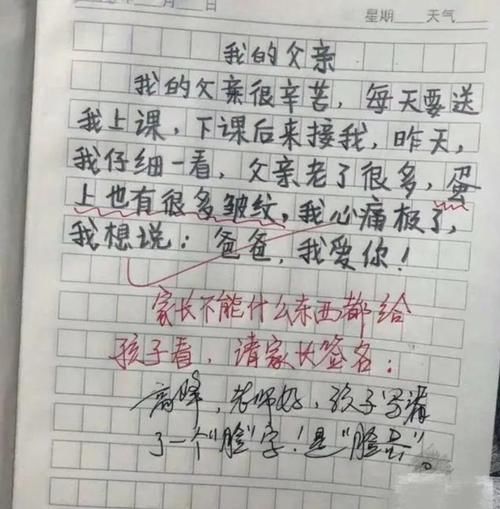 日 星期 天气
我的父亲
我的父亲很辛苦，每天要送
我上课，下课后来接我，昨天，
我仔细一看，父亲老了很多，蛋
上也有很多皱纹，我心痛极了，
我想说：爸爸，我爱你！
家长不能什么东西都给
孩子看，请家长签名：
高峰，老师好，孩子写漏
了一个"脸"字！是"脸蛋"